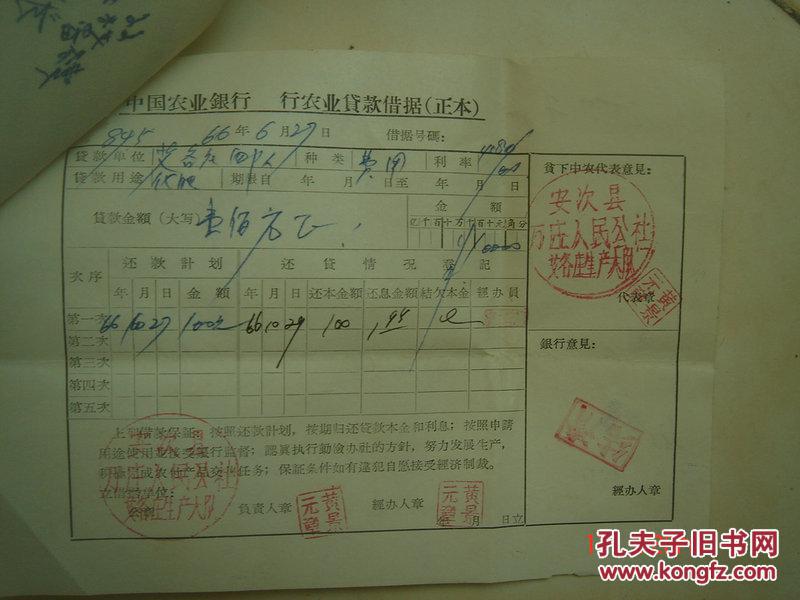 中国农业銀行 行农业貸款借据(正本)
845 66年6月27日 借据号碼:
貸款单位 艾各庄四队 种类 费用 利率
貸款用途 化肥 期限自 年 月 日至 年 月 日
貸款金額(大写) 壹佰元正 金額
亿千百十万千百十元角分
10000
次序 还款計划 还貸情况登記
年 月 日 金額 年 月 日 还本金額 还息金額 結欠本金 經办員
第一次 66 10 27 100元 66 10 29 100 1.99
第二次
第三次
第四次
第五次
上列借款保証:按照还款計划,按期归还貸款本金和利息;按照申請
用途使用並接受銀行监督;認眞执行勤儉办社的方針,努力发展生产,
积极完成农付产品交售任务;保証条件如有违犯自愿接受經济制裁。
立借据单位:
負責人章 經办人章 年 月 日立
黄景元章
黄景元章
安次县
万庄人民公社
艾各庄生产大队
貧下中农代表意見:
安次县
万庄人民公社
艾各庄生产大队
代表章
黄景元章
銀行意見:
經办人章
孔夫子旧书网
www.kongfz.com